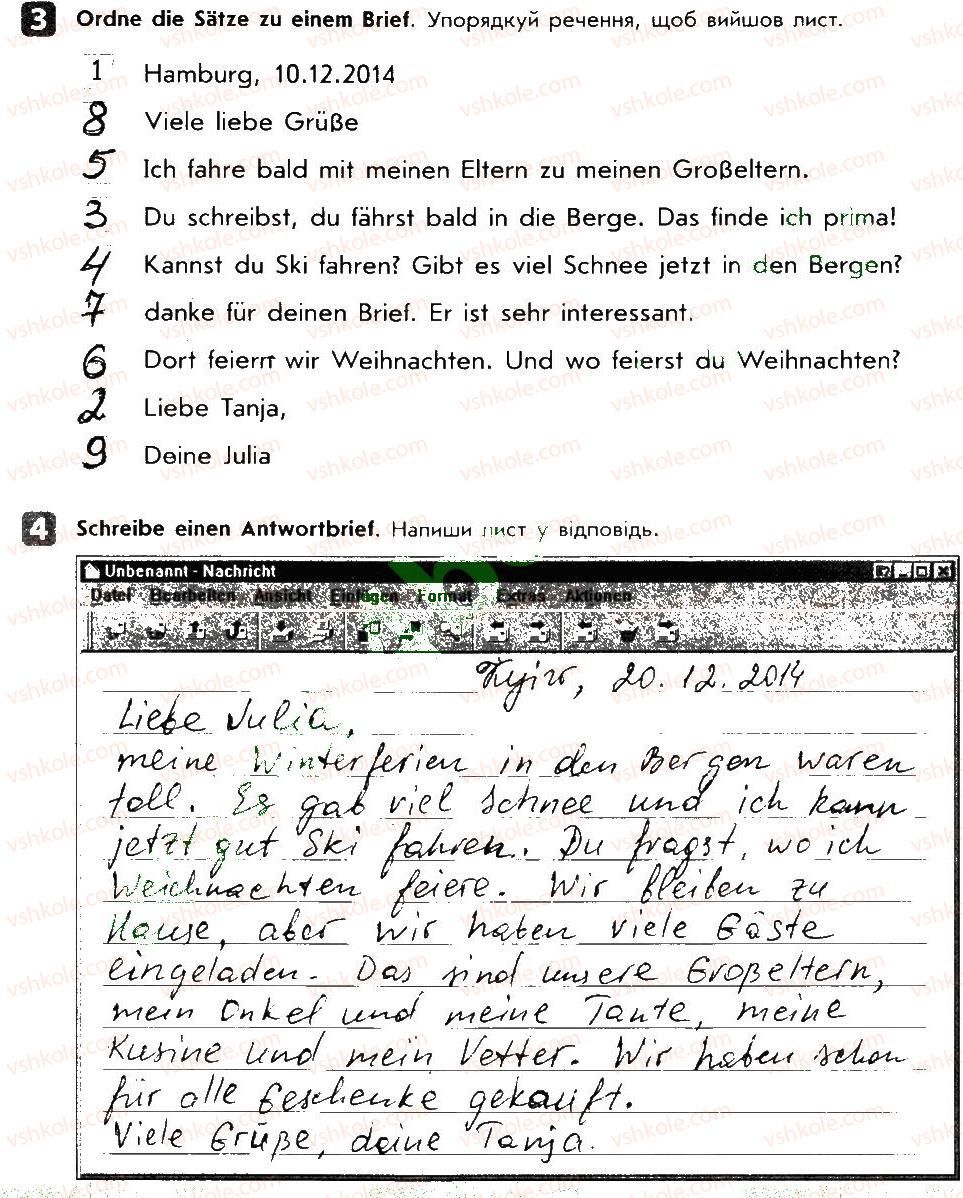 3 Ordne die Sätze zu einem Brief. Упорядкуй речення, щоб вийшов лист.
1 Hamburg, 10.12.2014
8 Viele liebe Grüße
5 Ich fahre bald mit meinen Eltern zu meinen Großeltern.
3 Du schreibst, du fährst bald in die Berge. Das finde ich prima!
4 Kannst du Ski fahren? Gibt es viel Schnee jetzt in den Bergen?
7 danke für deinen Brief. Er ist sehr interessant.
6 Dort feiern wir Weihnachten. Und wo feierst du Weihnachten?
2 Liebe Tanja,
9 Deine Julia
4 Schreibe einen Antwortbrief. Напиши лист у відповідь.
Unbenannt - Nachricht
Datei Bearbeiten Ansicht Einfügen Format Extras Aktionen
Kyiv, 20.12.2014
Liebe Julia,
meine Winterferien in den Bergen waren
toll. Es gab viel Schnee und ich kann
jetzt gut Ski fahren. Du fragst, wo ich
Weichnachten feiere. Wir bleiben zu
Hause, aber wir haben viele Gäste
eingeladen. Das sind unsere Großeltern,
mein Onkel und meine Tante, meine
Kusine und mein Vetter. Wir haben schon
für alle Geschenke gekauft.
Viele Grüße, deine Tanja.
vshkole.com